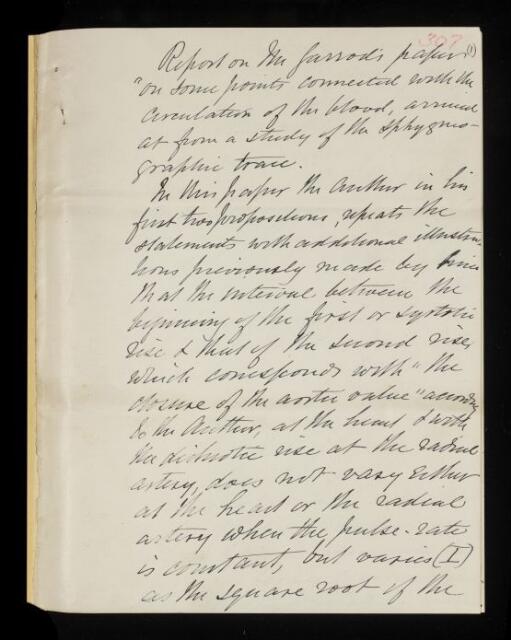 307
(1)
Report on Mr Garrod's paper
"on some points connected with the
circulation of the blood, arrived
at from a study of the sphygmo-
graphic trace.
In this paper the author in his
first two propositions, repeats the
statements with additional illustra-
tions previously made by him
that the interval between the
beginning of the first or systolic
rise & that of the second rise,
which corresponds with "the
closure of the aortic valve" according
to the Author, at the heart & with
the dichrotic rise at the radial
artery, does not vary either
at the heart or the radial
artery when the pulse-rate
is constant, but varies (I)
as the square root of the